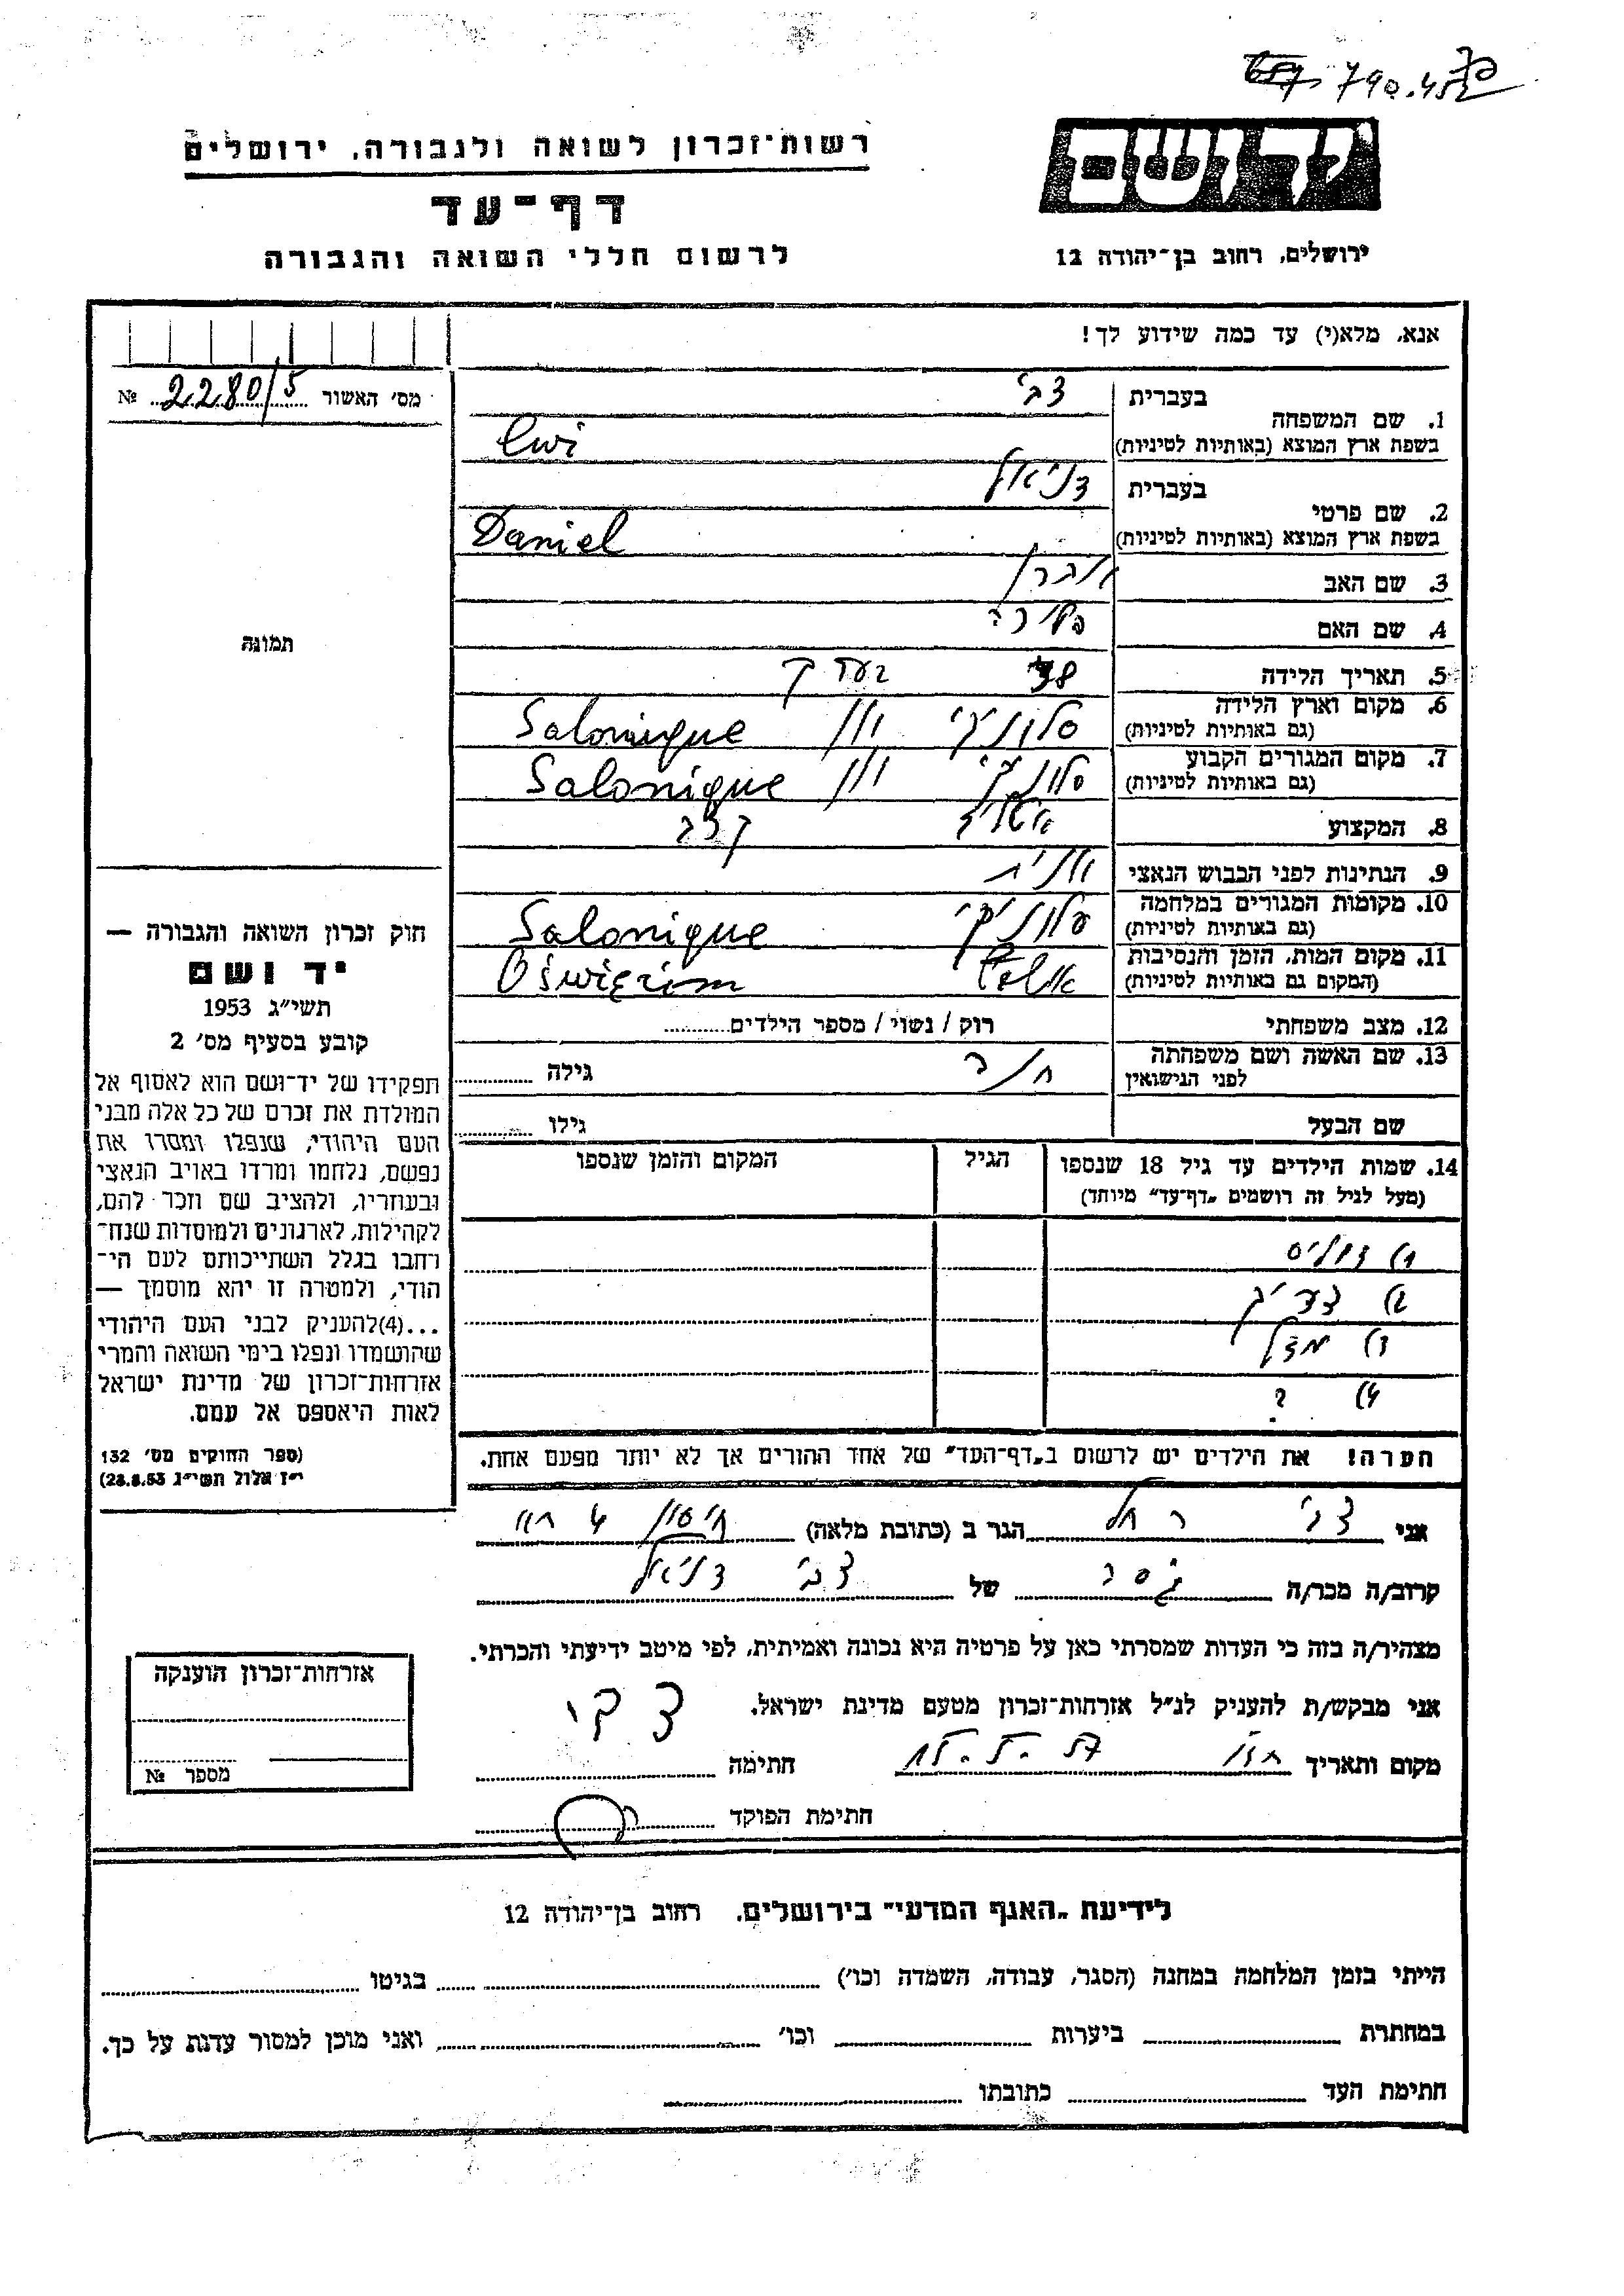 790.452
רשות־זכרון לשואה ולגבורה, ירושלים
דף־עד
לרשום חללי השואה והגבורה
יד ושם
ירושלים, רחוב בן־יהודה 12
אנא, מלא(י) עד כמה שידוע לך!
מס׳ האשור 2280/5 №
1. שם המשפחה
בעברית צבי
בשפת ארץ המוצא (באותיות לטיניות) Cwi
2. שם פרטי
בעברית דניאל
בשפת ארץ המוצא (באותיות לטיניות) Daniel
3. שם האב
4. שם האם
5. תאריך הלידה 38 בערך
6. מקום וארץ הלידה
(גם באותיות לטיניות) סלוניקי יוון Salonique
7. מקום המגורים הקבוע
(גם באותיות לטיניות) סלוניקי יוון Salonique
8. המקצוע
9. הנתינות לפני הכבוש הנאצי יוונית
10. מקומות המגורים במלחמה
(גם באותיות לטיניות) סלוניקי Salonique
11. מקום המות, הזמן והנסיבות
(המקום גם באותיות לטיניות) Oświęcim
12. מצב משפחתי רוק / נשוי / מספר הילדים
13. שם האשה ושם משפחתה
לפני הנישואין גילה
שם הבעל גילו
14. שמות הילדים עד גיל 18 שנספו
(מעל לגיל זה רושמים „דף־עד״ מיוחד)
הגיל
המקום והזמן שנספו
ד)
? )
הערה! את הילדים יש לרשום ב„דף־העד״ של אחד ההורים אך לא יותר מפעם אחת.
תמונה
חוק זכרון השואה והגבורה —
יד ושם
תשי״ג 1953
קובע בסעיף מס׳ 2
תפקידו של יד־ושם הוא לאסוף אל
המולדת את זכרם של כל אלה מבני
העם היהודי, שנפלו ומסרו את
נפשם, נלחמו ומרדו באויב הנאצי
ובעוזריו, ולהציב שם וזכר להם,
לקהילות, לארגונים ולמוסדות שנח־
רחבו בגלל השתייכותם לעם הי־
הודי, ולמטרה זו יהא מוסמך —
...(4)להעניק לבני העם היהודי
שהושמדו ונפלו בימי השואה והמרי
אזרחות־זכרון של מדינת ישראל
לאות היאספם אל עמם.
(ספר החוקים מס׳ 132
י״ז אלול תשי״ג 28.8.53)
אני צבי רחל הגר ב (כתובת מלאה)
קרוב/ה מכר/ה גיסה של צבי דניאל
מצהיר/ה בזה כי העדות שמסרתי כאן על פרטיה היא נכונה ואמיתית, לפי מיטב ידיעתי והכרתי.
אני מבקש/ת להעניק לנ״ל אזרחות־זכרון מטעם מדינת ישראל.
מקום ותאריך
חתימה
חתימת הפוקד
אזרחות־זכרון הוענקה
מספר №
לידיעת „האגף המדעי״ בירושלים, רחוב בן־יהודה 12
הייתי בזמן המלחמה במחנה (הסגר, עבודה, השמדה וכו׳) בגיטו
במחתרת ביערות וכו׳ ואני מוכן למסור עדות על כך.
חתימת העד כתובתו